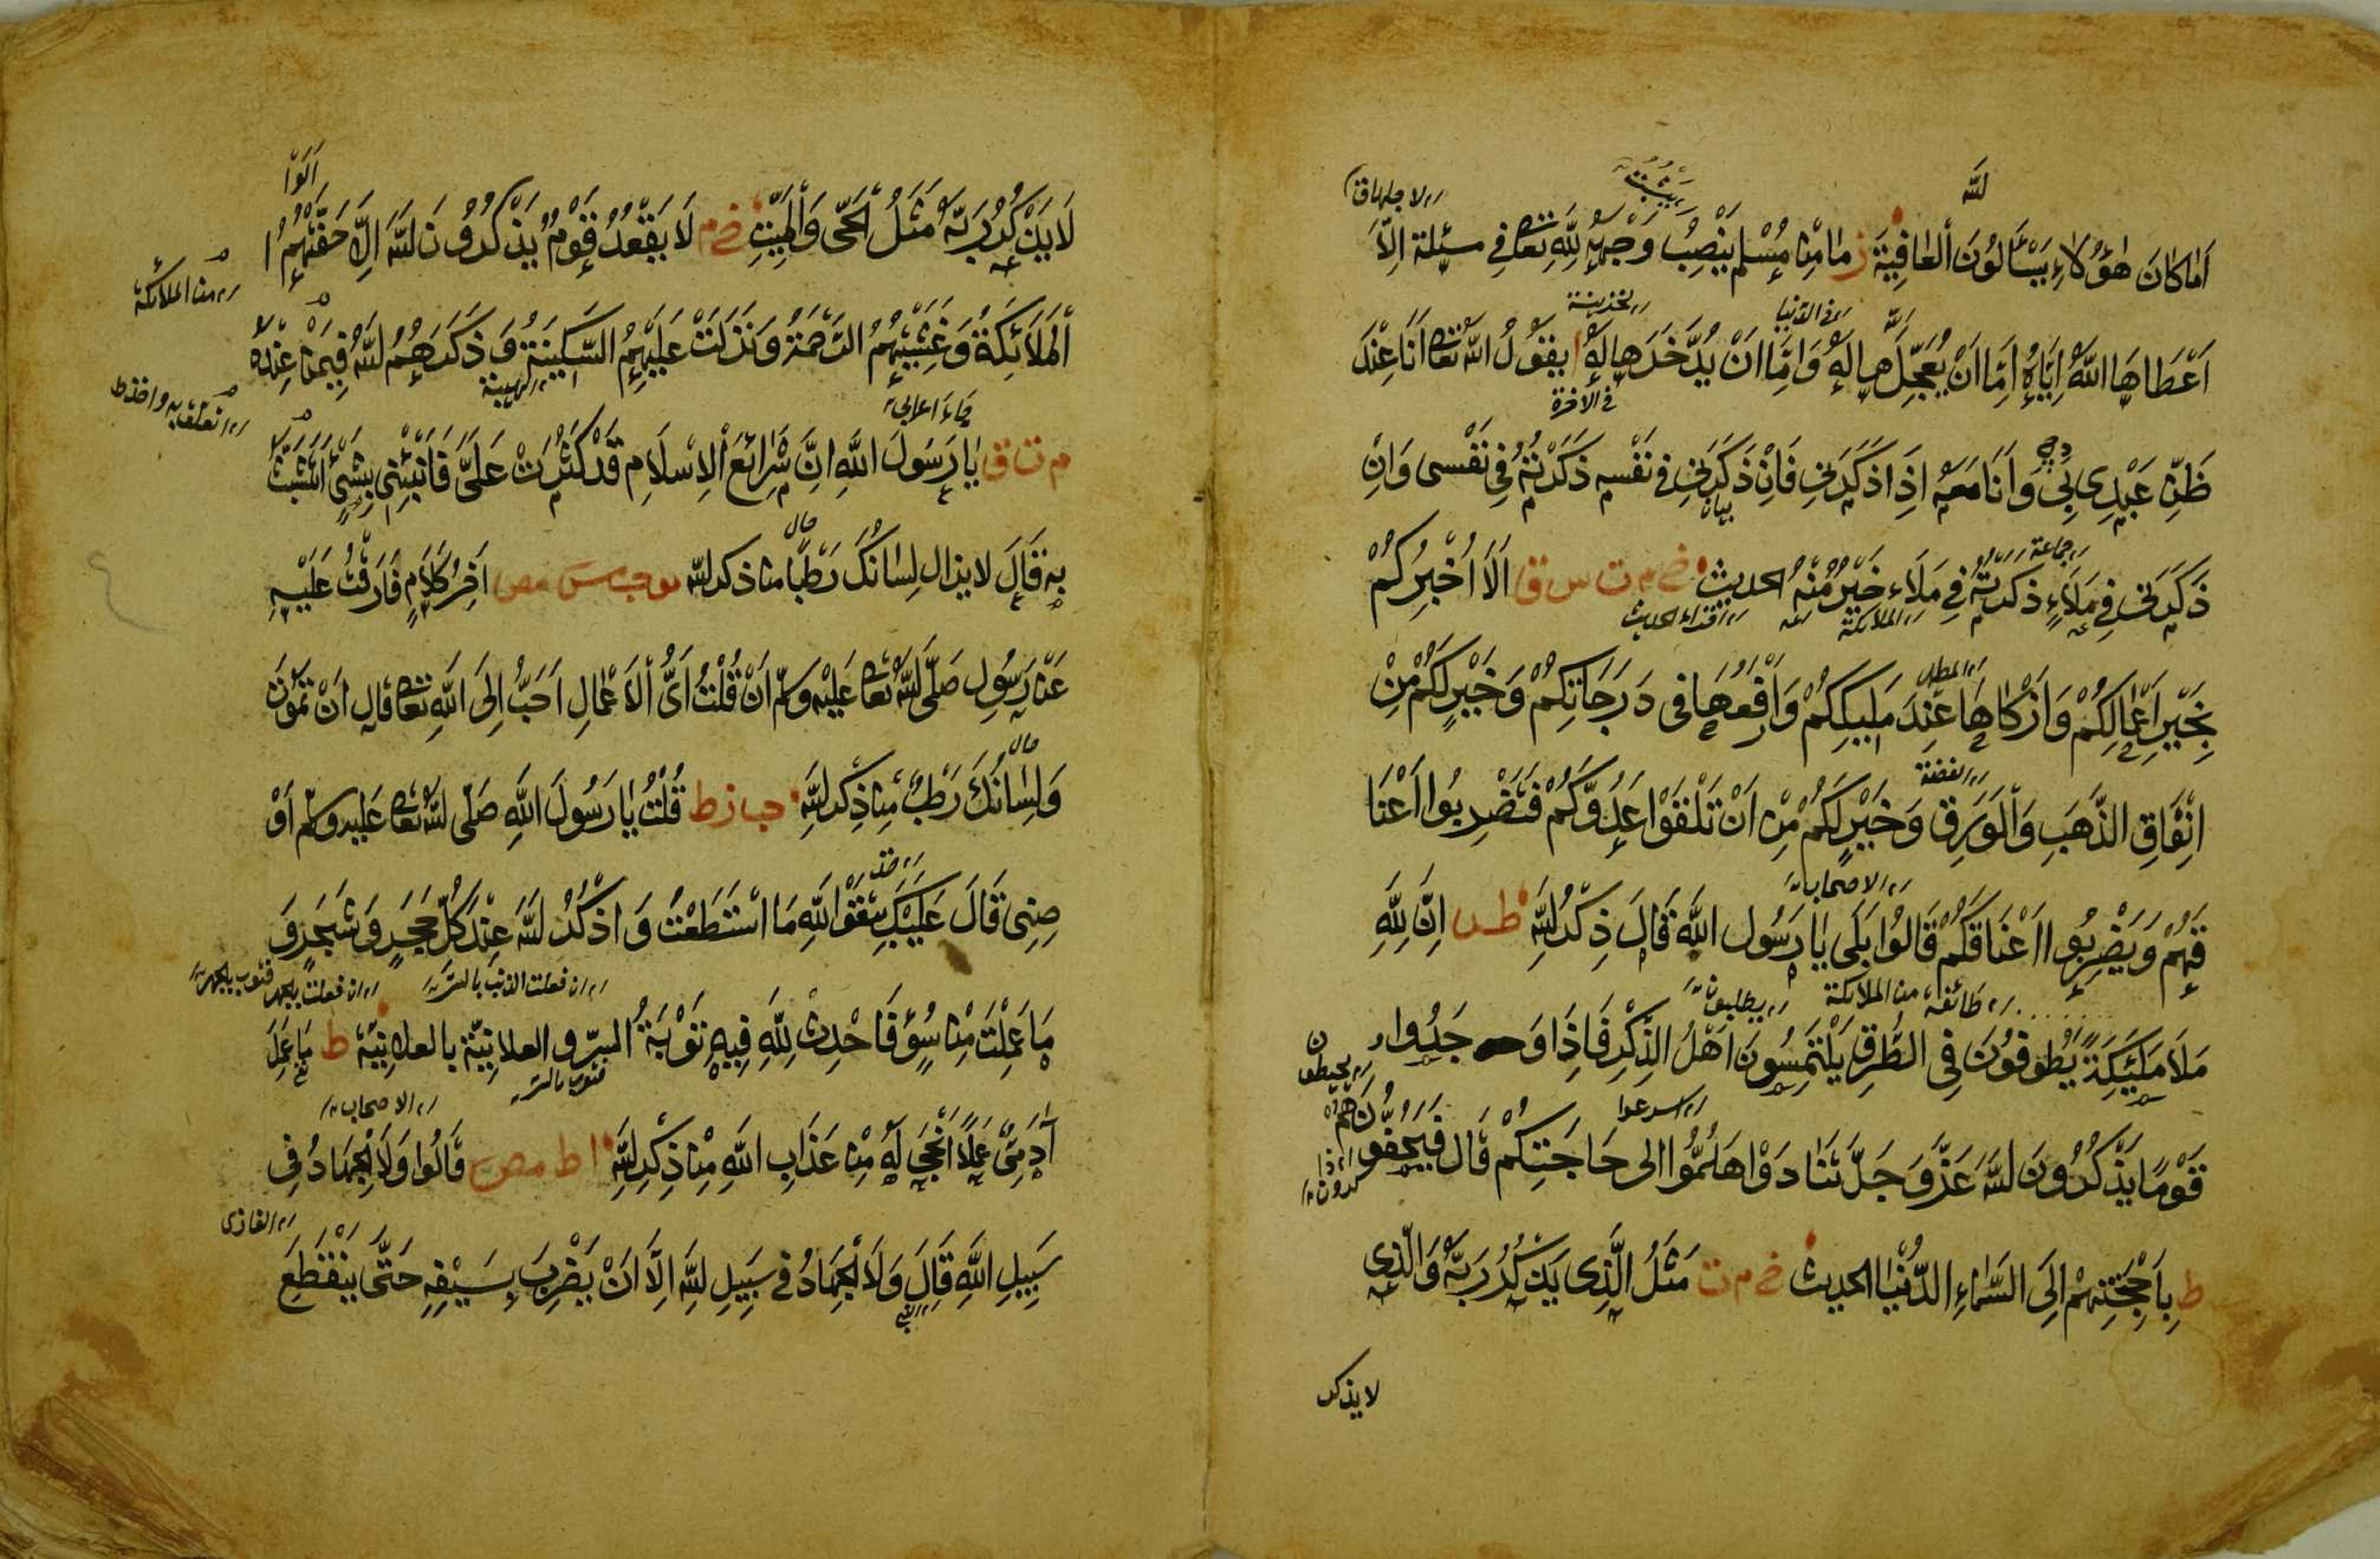 لله
اَمَا كَانَ هٰؤُلَاءِ يَسْأَلُونَ الْعَافِيَةَ ز مَا مِنْ مُسْلِمٍ يَنْصِبُ وَجْهَهُ لِلّٰهِ تَعَالٰى فِي مسئلة اِلَّا
اَعْطَاهَا اللّٰهُ اِيَّاهُ اِمَّا اَنْ يُعَجِّلَهَا لَهُ وَاِمَّا اَنْ يَدَّخِرَهَا لَهُ ا يقُولُ اللّٰهُ تَعَالٰى اَنَا عِنْدَ
في الاخرة
ظَنِّ عَبْدِي بِي وَاَنَا مَعَهُ اِذَا ذَكَرَنِي فَاِنْ ذَكَرَنِي فِي نَفْسِهِ ذَكَرْتُهُ فِي نَفْسِي وَاِنْ
جماعة
ذَكَرَنِي فِي مَلَاءٍ ذَكَرْتُهُ فِي مَلَاءٍ خَيْرٍ مِنْهُ الحديث خ م ت س ق اَلَا اُخْبِرُكُمْ
الملائكة
بِخَيْرِ اَعْمَالِكُمْ وَاَزْكَاهَا عِنْدَ مَلِيكِكُمْ وَاَرْفَعِهَا فِي دَرَجَاتِكُمْ وَخَيْرٍ لَكُمْ مِنْ
الفضة
اِنْفَاقِ الذَّهَبِ وَالْوَرِقِ وَخَيْرٍ لَكُمْ مِنْ اَنْ تَلْقَوْا عَدُوَّكُمْ فَتَضْرِبُوا اَعْنَا
الاصحاب
قَهُمْ وَيَضْرِبُوا اَعْنَاقَكُمْ قَالُوا بَلَى يَا رَسُولَ اللّٰهِ قَالَ ذِكْرُ اللّٰهِ ط اِنَّ لِلّٰهِ
طائفة من الملائكة يطلبون
مَلَا مَلَيِكَةً يَطُوفُونَ فِي الطُّرُقِ يَلْتَمِسُونَ اَهْلَ الذِّكْرِ فَاِذَا وَجَدُوا
اسرعوا
قَوْمًا يَذْكُرُونَ اللّٰهَ عَزَّ وَجَلَّ تَنَادَوْا هَلُمُّوا اِلٰى حَاجَتِكُمْ قَالَ فَيَحُفُّونَهُمْ
ط بِاَجْنِحَتِهِمْ اِلَى السَّمَاءِ الدُّنْيَا الحديث خ م ت مَثَلُ الَّذِي يَذْكُرُ رَبَّهُ وَالَّذِي
لا يذكر
لَا يَذْكُرُ رَبَّهُ مَثَلُ الْحَيِّ وَالْمَيِّتِ خ م لَا يَقْعُدُ قَوْمٌ يَذْكُرُونَ اللّٰهَ اِلَّا حَفَّتْهُمُ ا
من الملائكة
الْمَلَائِكَةُ وَغَشِيَتْهُمُ الرَّحْمَةُ وَنَزَلَتْ عَلَيْهِمُ السَّكِينَةُ وَذَكَرَهُمُ اللّٰهُ فِيمَنْ عِنْدَهُ
جاء اعرابي
م ت ق يَا رَسُولَ اللّٰهِ اِنَّ شَرَائِعَ الْاِسْلَامِ قَدْ كَثُرَتْ عَلَيَّ فَاَنْبِئْنِي بِشَيْءٍ اَتَشَبَّثُ
بِهِ قَالَ لا يزال لِسَانُكَ رَطْبًا من ذكر الله ت حب مس مص اٰخِرُ كَلَامٍ فَارَقْتُ عَلَيْهِ
عَنْ رَسُولِ صَلَّى اللّٰهُ تَعَالٰى عَلَيْهِ وَسَلَّمَ اَنْ قُلْتُ اَيُّ الْاَعْمَالِ اَحَبُّ اِلَى اللّٰهِ تَعَالٰى قَالَ اَنْ تَمُوتَ
حال
وَلِسَانُكَ رَطْبٌ مِنْ ذِكْرِ اللّٰهِ حب ز ط قُلْتُ يَا رَسُولَ اللّٰهِ صَلَّى اللّٰهُ تَعَالٰى عَلَيْهِ وَسَلَّمَ اَوْ
صِنِي قَالَ عَلَيْكَ بِتَقْوَى اللّٰهِ مَا اسْتَطَعْتَ وَاذْكُرُ اللّٰهَ عِنْدَ كُلِّ حَجَرٍ وَشَجَرٍ وَ
مَا عَمِلْتَ مِنْ سُوءٍ فَاَحْدِثْ لِلّٰهِ فِيهِ تَوْبَةً السِّرُّ والعلانية بالعلانية ط مَا عَمِلَ
الاصحاب
اٰدَمِيٌّ عَمَلًا اَنْجٰى لَهُ مِنْ عَذَابِ اللّٰهِ مِنْ ذِكْرِ اللّٰهِ ا ط مص قَالُوا وَلَا الْجِهَادُ فِي
الغازى
سَبِيلِ اللّٰهِ قَالَ وَلَا الْجِهَادُ فِي سَبِيلِ اللّٰهِ اِلَّا اَنْ يَضْرِبَ بِسَيْفِهِ حَتّٰى يَنْقَطِعَ